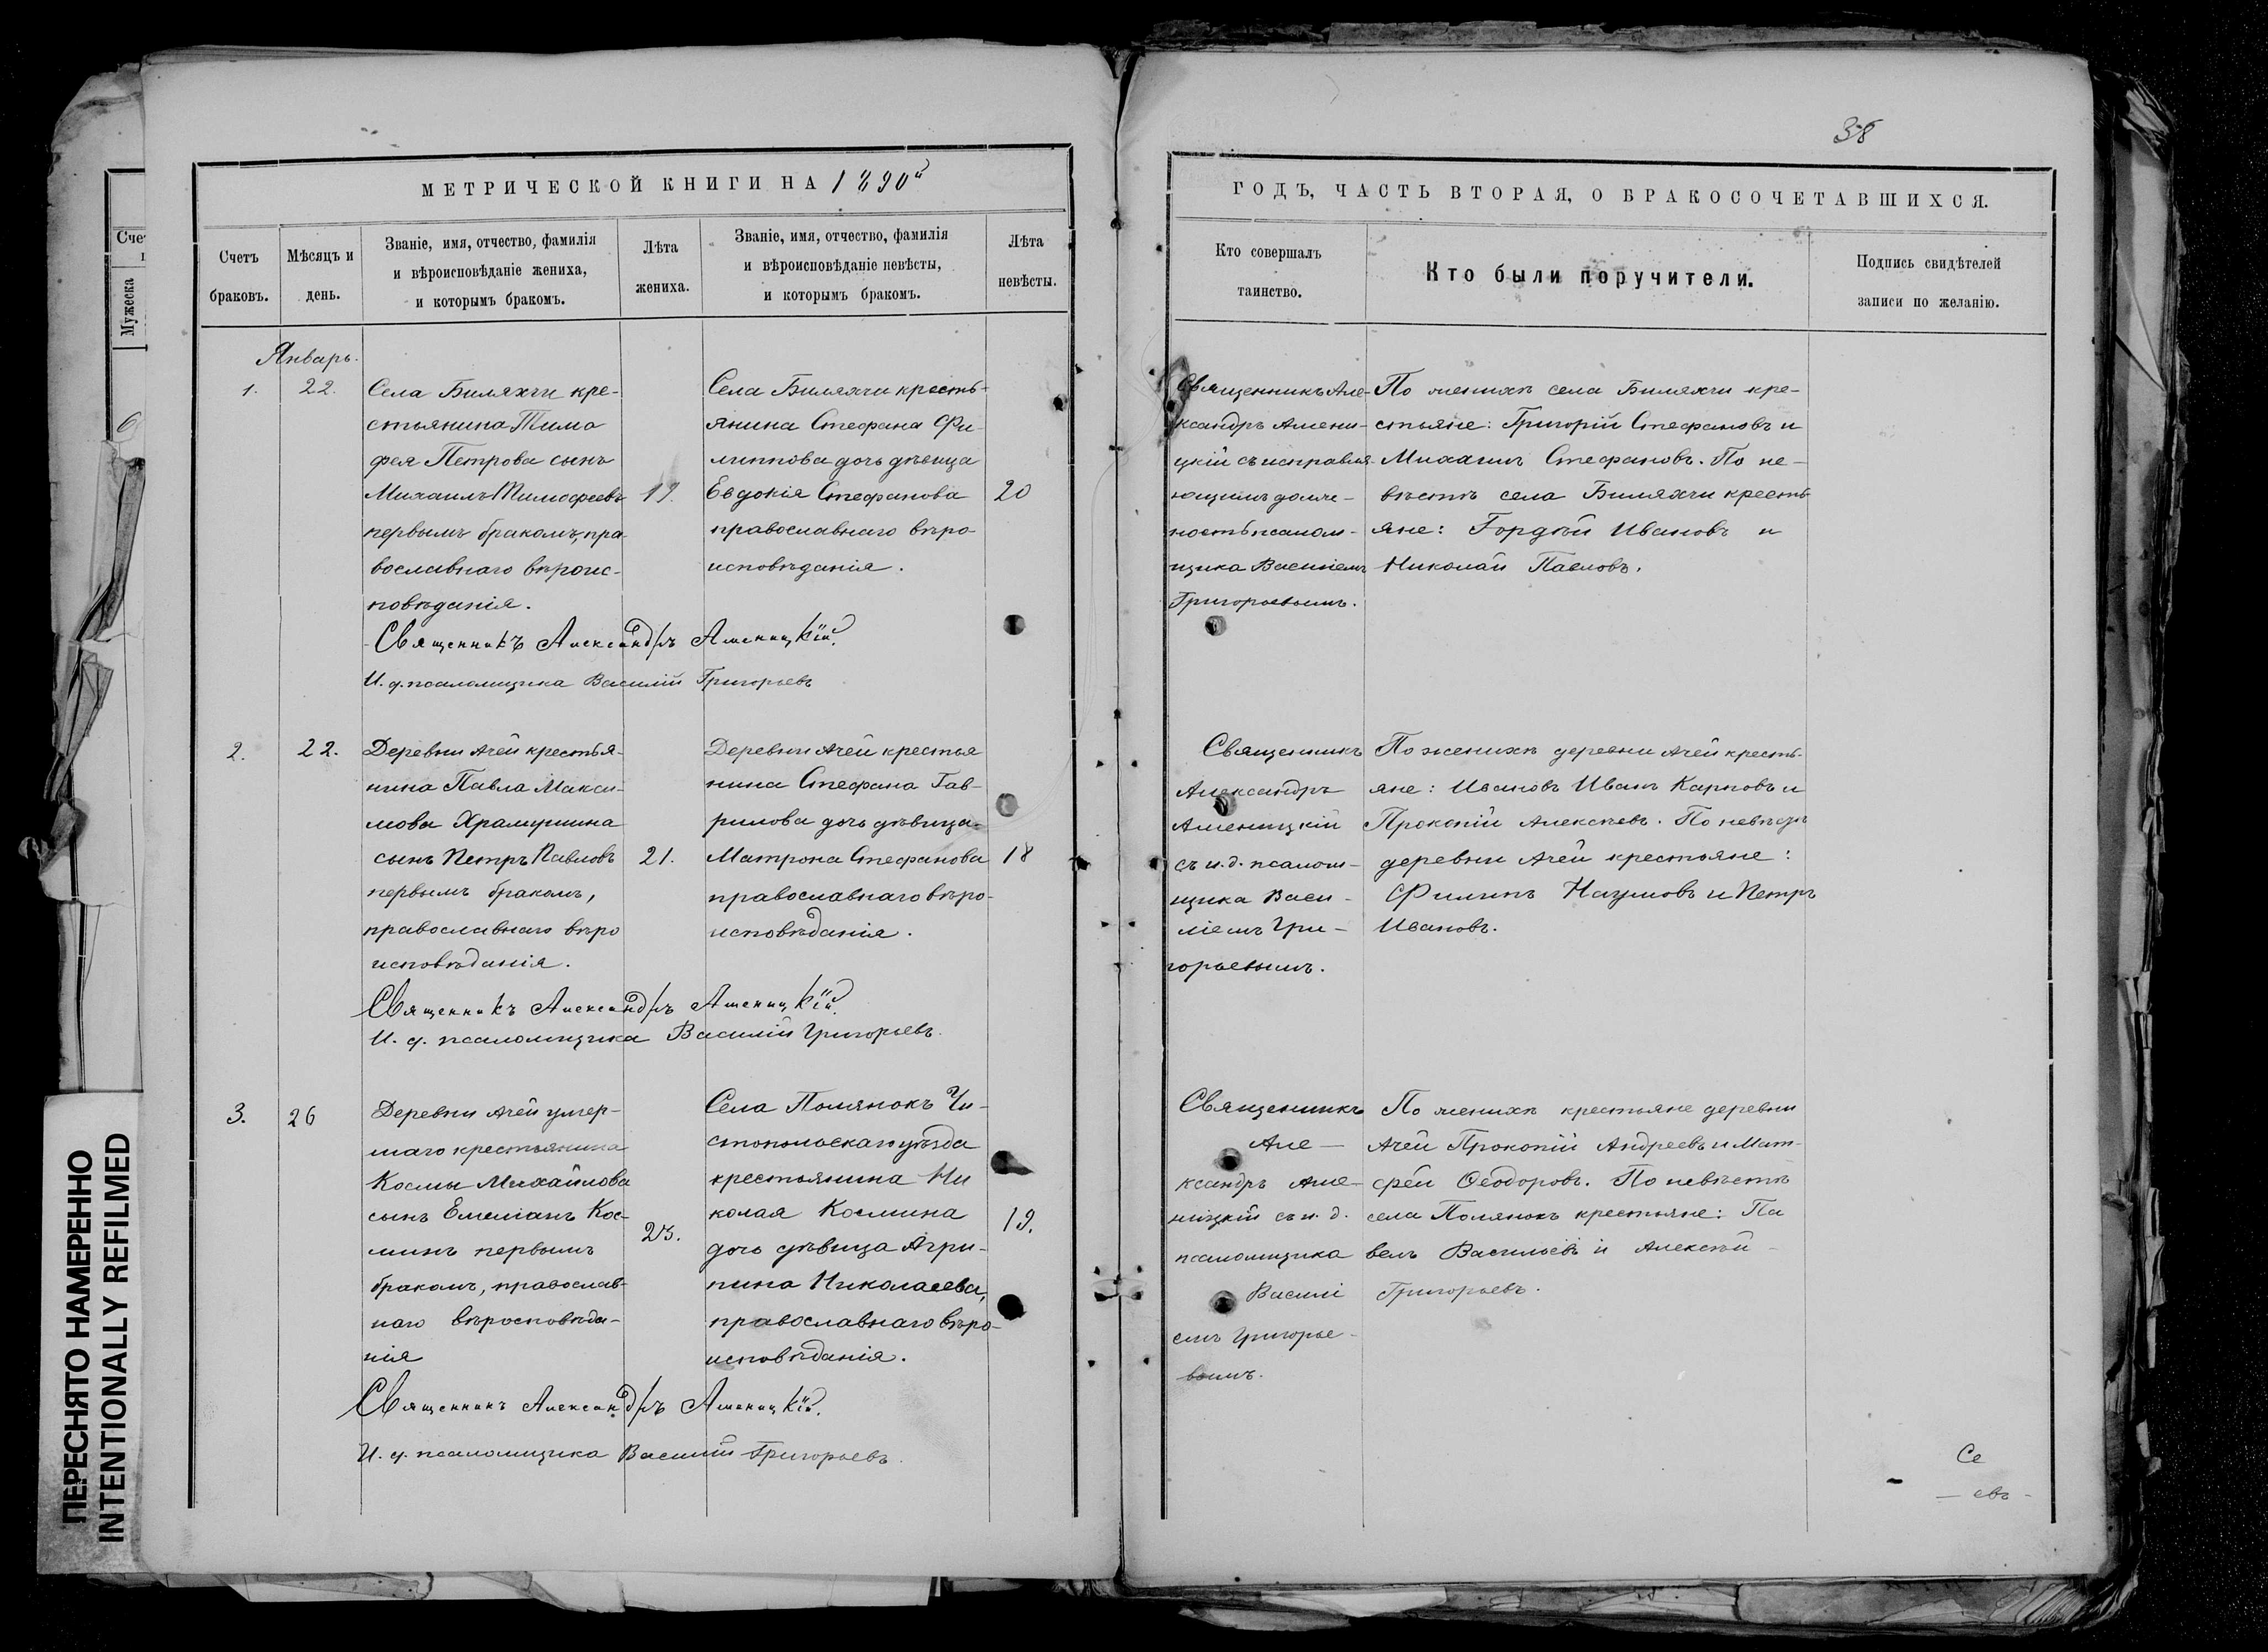 38
МЕТРИЧЕСКОЙ КНИГИ НА 1890й
ГОДЪ, ЧАСТЬ ВТОРАЯ, О БРАКОСОЧЕТАВШИХСЯ.
Счетъ
браковъ.
Мѣсяцъ и
день.
Званіе, имя, отчество, фамилія
и вѣроисповѣданіе жениха,
и которымъ бракомъ.
Лѣта
жениха.
Званіе, имя, отчество, фамилія
и вѣроисповѣданіе невѣсты,
и которымъ бракомъ.
Лѣта
невѣсты.
Кто совершалъ
таинство.
Кто были поручители.
Подпись свидѣтелей
записи по желанію.
Январь.
1.
22.
Села Биляхчи кре-
стьянина Тимо
фея Петрова сынъ
Михаилъ Тимофеевъ
первымъ бракомъ, пра-
вославнаго вѣроис-
повѣданія.
Села Биляхчи кресть-
янина Стефана Фи-
липпова дочь дѣвица
Евдокія Стефанова
православнаго вѣро-
исповѣданія.
20
Священникъ Але-
ксандръ Амени-
цкій съ исправля-
ющимъ долж-
ность псалом-
щика Василіемъ
Григорьевымъ.
По женихѣ села Биляхчи кре-
стьяне: Григорій Стефановъ и
Михаилъ Стефановъ. По не-
вѣстѣ села Биляхчи кресть-
яне: Гордѣй Ивановъ и
Николай Павловъ.
Священникъ Александръ Аменицкій.
И. д. псаломщика Василій Григорьевъ
2.
22.
Деревни Ачей крестья-
нина Павла Макси-
мова Храмушина
сынъ Петръ Павловъ
первымъ бракомъ,
православнаго вѣро
исповѣданія.
21.
Деревни Ачей крестья
нина Стефана Гав-
рилова дочь дѣвица
Матрона Стефанова
православнаго вѣро-
исповѣданія.
18
Священникъ
Александръ
Аменицкій
съ и. д. псалом-
щика Васи-
ліемъ Гри-
горьевымъ.
По женихѣ деревни Ачей кресть-
яне: Ивановъ Иванъ Карповъ и
Прокопій Алексѣевъ. По
деревни Ачей крестьяне:
Филипъ Наумовъ и Петръ
Ивановъ.
Священникъ Александръ Аменицкій.
И. д. псаломщика Василій Григорьевъ.
3.
26
Деревни Ачей умер-
шаго крестьянина
Космы Михайлова
сынъ Емеліанъ Кос-
минъ первымъ
бракомъ, православ-
наго вѣроисповѣда-
нія
Села Полянокъ Чи-
стопольскаго уѣзда
крестьянина Ни
колая Космина
дочь дѣвица Агри-
пина Николаева,
православнаго вѣро-
исповѣданія.
19.
Священникъ
Але-
ксандръ Аме-
ницкій съ и. д.
псаломщика
Василі
емъ Григорье-
вымъ.
По женихѣ крестьяне деревни
Ачей Прокопій Андреевъ и Мат-
фей Ѳеодоровъ. По невѣстѣ
села Полянокъ крестьяне: Па
велъ Васильевъ и Алексѣй
Григорьевъ.
Священникъ Александръ Аменицкій.
И. д. псаломщика Василій Григорьевъ.
Се
евъ
Мужеска
ПЕРЕСНЯТО НАМЕРЕННО
INTENTIONALLY REFILMED